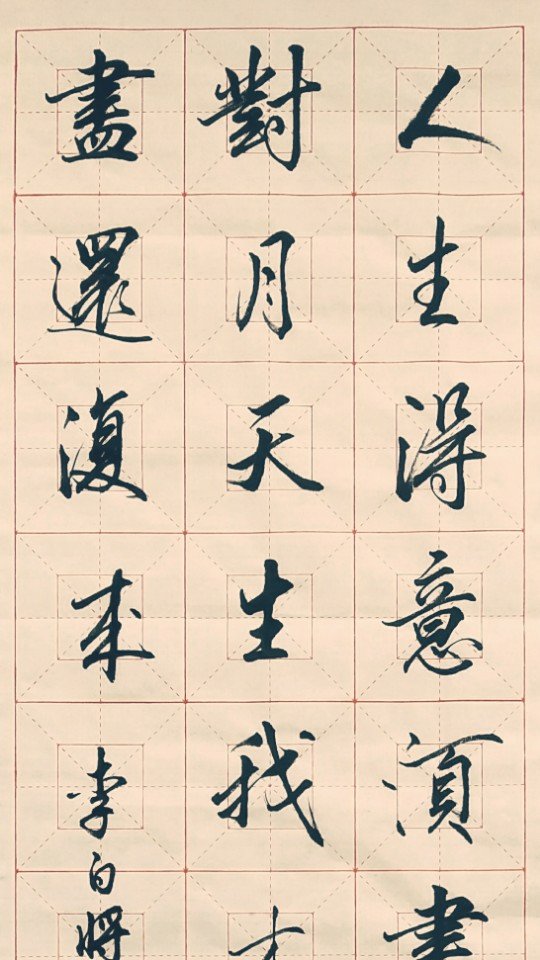 人生得意須盡
對月天生我
盡還復來
李白將